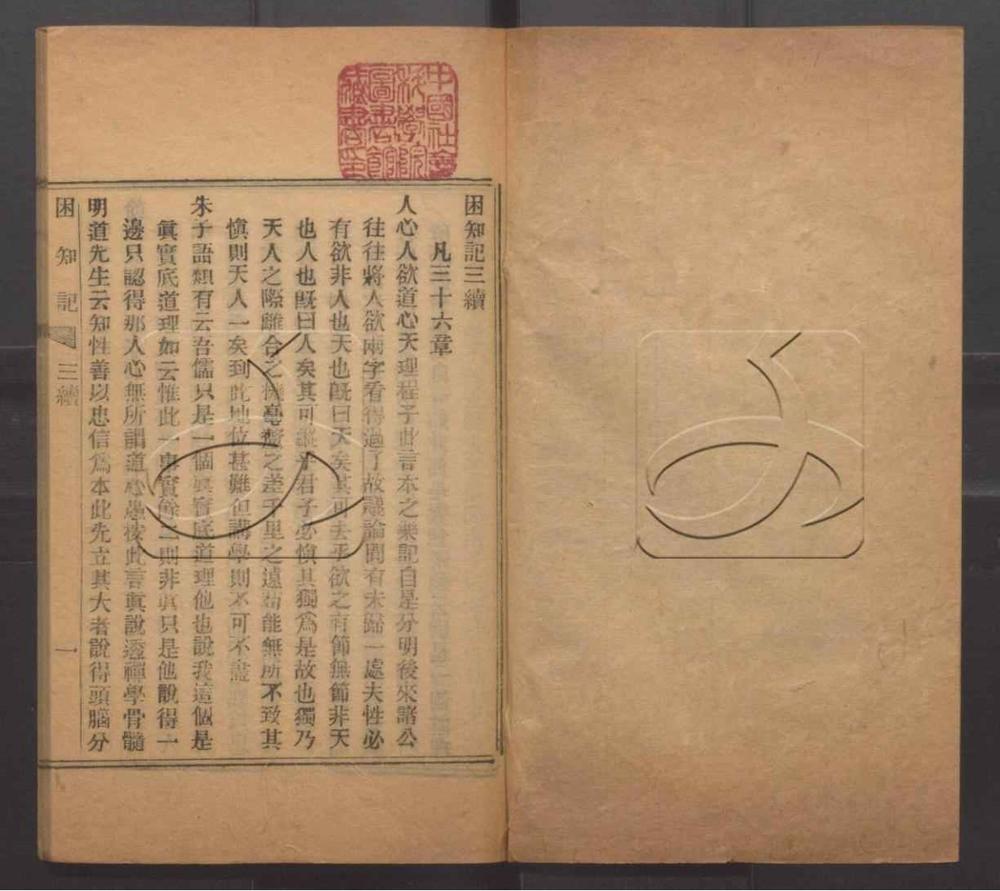 中國社會
科學院
圖書館
藏書印
困知記三續
凡三十六章
人心人欲道心天理程子此言本之樂記自是分明後來諸公
往往將人欲兩字看得過了故議論間有未歸一處夫性必
有欲非人也天也旣曰天矣其可去乎欲之有節無節非天
也人也旣曰人矣其可縱乎君子必愼其獨爲是故也獨乃
天人之際離合之機毫釐之差千里之遠苟能無所不致其
愼則天人一矣到此地位甚難但講學則不可不盡
朱子語類有云吾儒只是一個眞實底道理他也說我這個是
眞實底道理如云惟此一事實餘二則非眞只是他說得一
邊只認得那人心無所謂道心愚按此言眞說透禪學骨髓
明道先生云知性善以忠信爲本此先立其大者說得頭腦分
困知記 三續 一